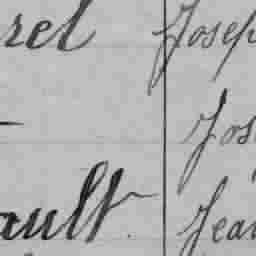 rel Josep
— Jos
ault. Jean